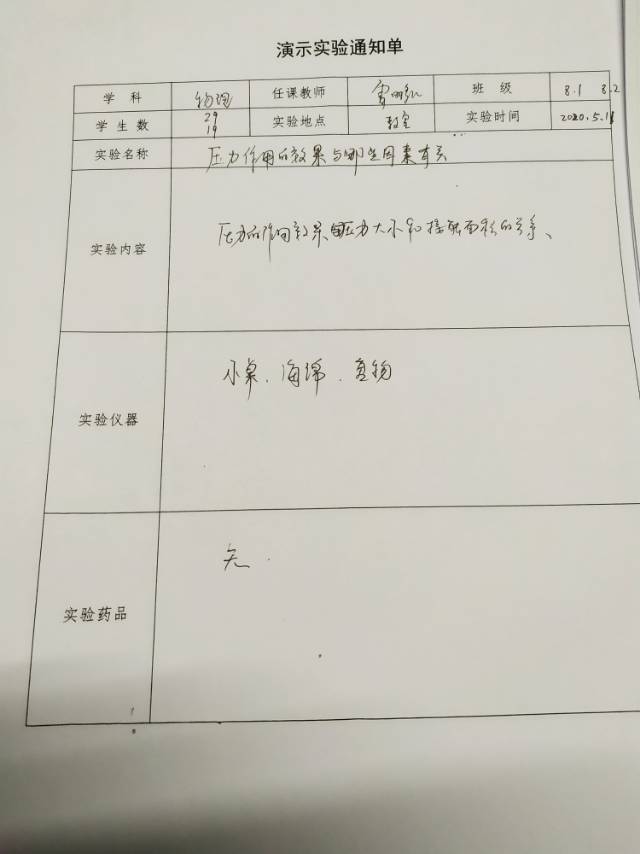 演示实验通知单
学 科 物理 任课教师 班 级 8.1 8.2
学生数 29 19 实验地点 教室 实验时间 2020.5.1
实验名称 压力作用的效果与哪些因素有关
实验内容 压力的作用效果与压力大小和接触面积的关系、
实验仪器 小桌、海绵、重物
实验药品 无.